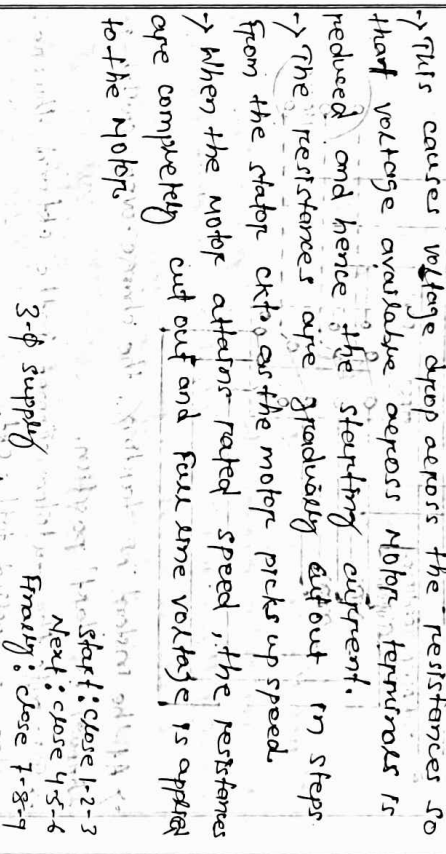 → This causes voltage drop across the resistances so
that voltage available across Motor terminals is
reduced and hence the starting current.
→ The resistances are gradually cut out in steps
from the stator ckt. as the motor picks up speed.
→ When the motor attains rated speed, the resistances
are completely cut out and full line voltage is applied
to the Motor
3-ϕ supply
Start: close 1-2-3
Next: close 4-5-6
Finally: close 7-8-9